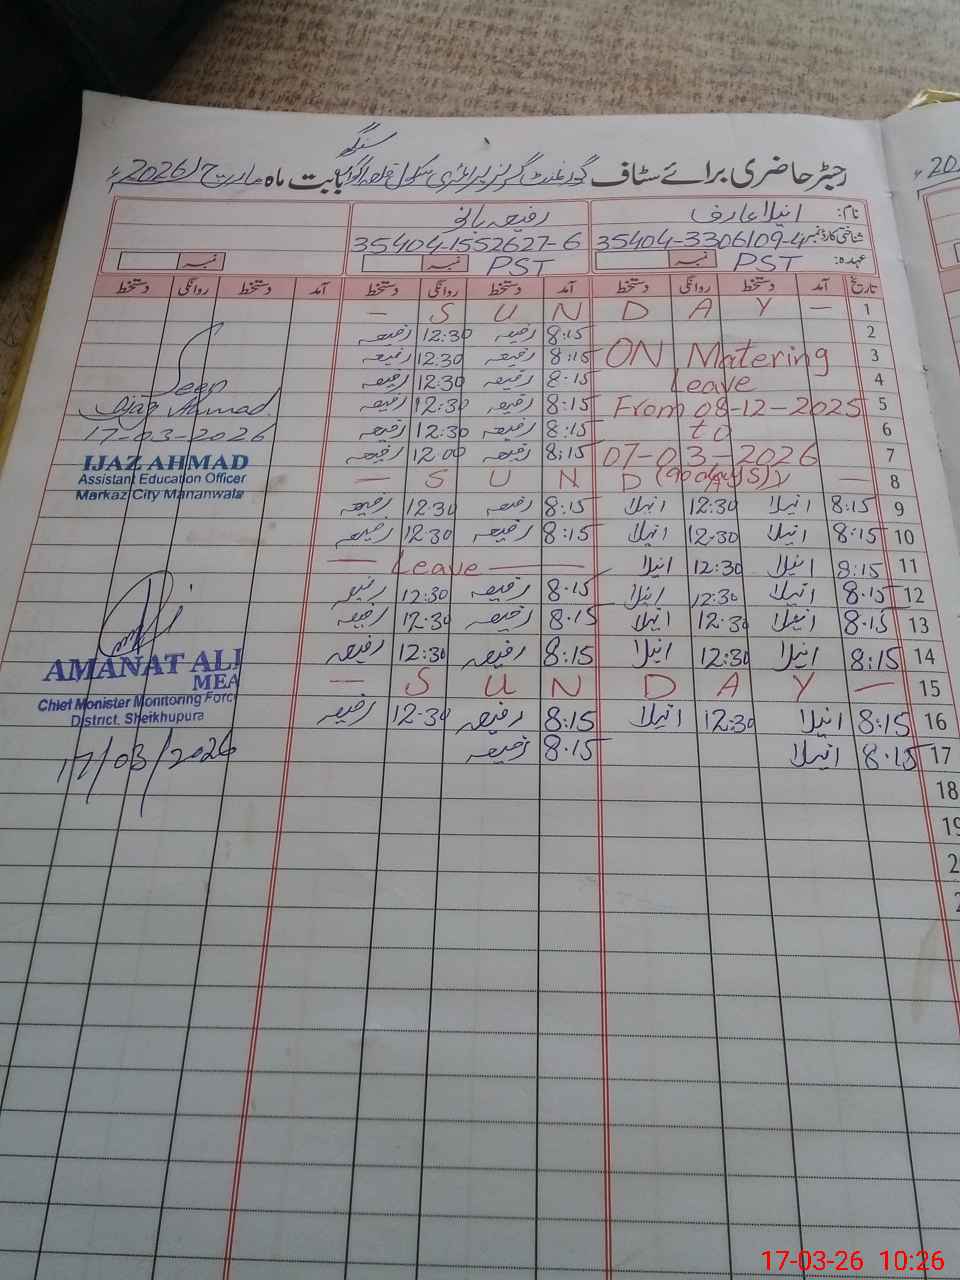 رجسٹر حاضری برائے سٹاف گورنمنٹ گرلز پرائمری سکول قلعہ سنگھ بابت ماہ مارچ 2026ء
نام: انیلا عارف رفیعہ بانو
شناختی کارڈ نمبر 35404-3306109-4 35404-1552627-6
عہدہ: PST نمبر PST نمبر نمبر
تاریخ آمد دستخط روانگی دستخط آمد دستخط روانگی دستخط آمد دستخط روانگی دستخط
1 — S U N D A Y —
2 8:15 رفیعہ 12:30 رفیعہ
3 ON Matering 8:15 رفیعہ 12:30 رفیعہ
4 Leave 8:15 رفیعہ 12:30 رفیعہ
5 From 08-12-2025 8:15 رفیعہ 12:30 رفیعہ
6 to 8:15 رفیعہ 12:30 رفیعہ
7 07-03-2026 8:15 رفیعہ 12:00 رفیعہ
8 — S U N D (90 days) Y —
9 8:15 انیلا 12:30 انیلا 8:15 رفیعہ 12:30 رفیعہ
10 8:15 انیلا 12:30 انیلا 8:15 رفیعہ 12:30 رفیعہ
11 8:15 انیلا 12:30 انیلا — Leave —
12 8:15 انیلا 12:30 انیلا 8:15 رفیعہ 12:30 رفیعہ
13 8:15 انیلا 12:30 انیلا 8:15 رفیعہ 12:30 رفیعہ
14 8:15 انیلا 12:30 انیلا 8:15 رفیعہ 12:30 رفیعہ
15 — S U N D A Y —
16 8:15 انیلا 12:30 انیلا 8:15 رفیعہ 12:30 رفیعہ
17 8:15 انیلا 8:15 رفیعہ
18
19
Seen
Ijaz Ahmad
17-03-2026
IJAZ AHMAD
Assistant Education Officer
Markaz City Mananwala
AMANAT ALI
MEA
Chief Monister Monitoring Force
District, Sheikhupura
17/03/2026
17-03-26 10:26